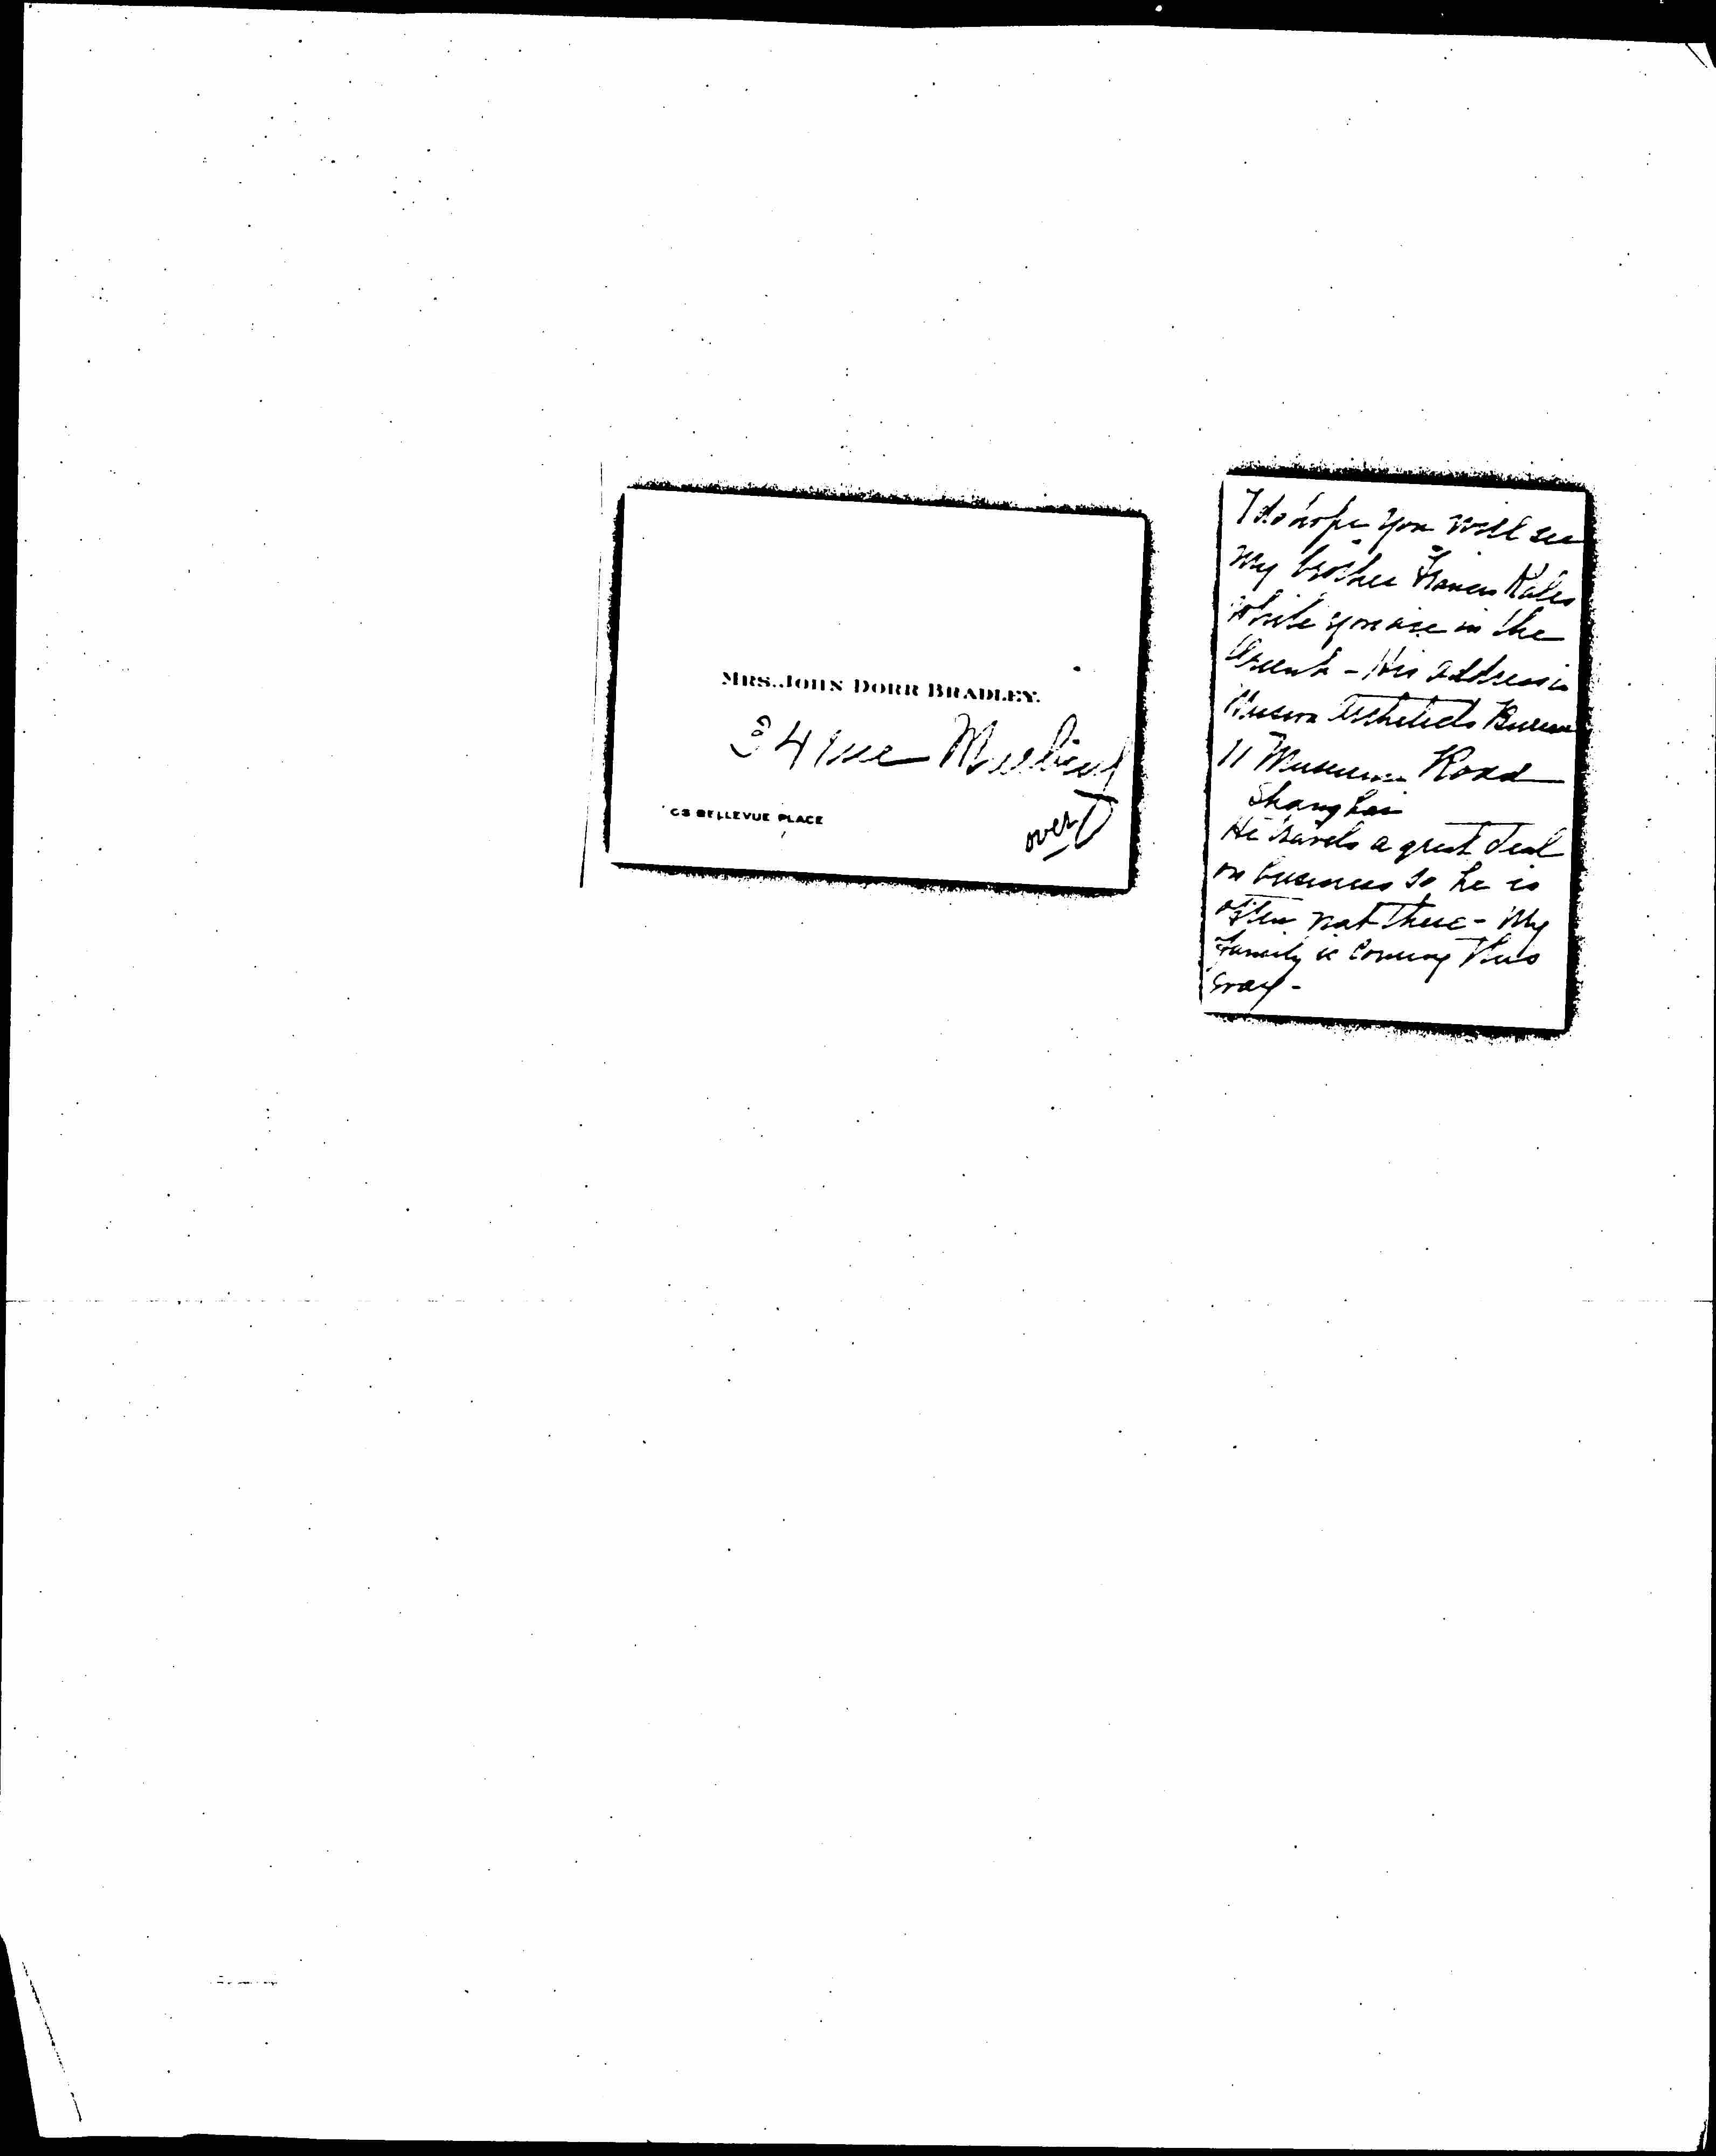 MRS. JOHN DORR BRADLEY.
34 rue
63 BELLEVUE PLACE
over
I do hope you will see
my brother Francis Kales
while you are in the
Orient - His address is
Architects Bureau
11 Museum Road
Shanghai
He travels a great deal
on business so he is
often not there - My
family is coming this
way -